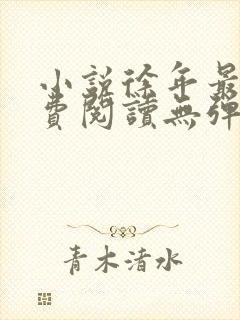 小説徐年最
費閱讀無彈
青木清水